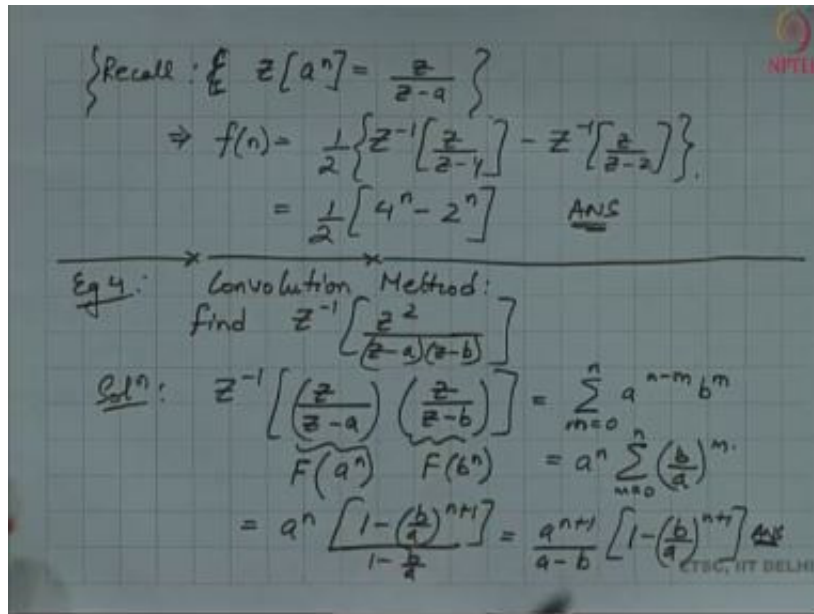 NPTEL
{Recall : { z[aⁿ] = z/(z-a) }
⇒ f(n) = 1/2 {z⁻¹[z/(z-4)] - z⁻¹[z/(z-2)]}.
= 1/2 [4ⁿ - 2ⁿ] ANS
Eg 4: Convolution Method:
find z⁻¹[z²/((z-a)(z-b))]
Solⁿ: z⁻¹[(z/(z-a)) (z/(z-b))] = ∑_{m=0}^{n} a^{n-m} b^m
F(aⁿ) F(bⁿ) = aⁿ ∑_{m=0}^{n} (b/a)^m.
= aⁿ [1-(b/a)^{n+1}]/(1-b/a) = a^{n+1}/(a-b) [1-(b/a)^{n+1}] Ans
ETSC, IIT DELHI